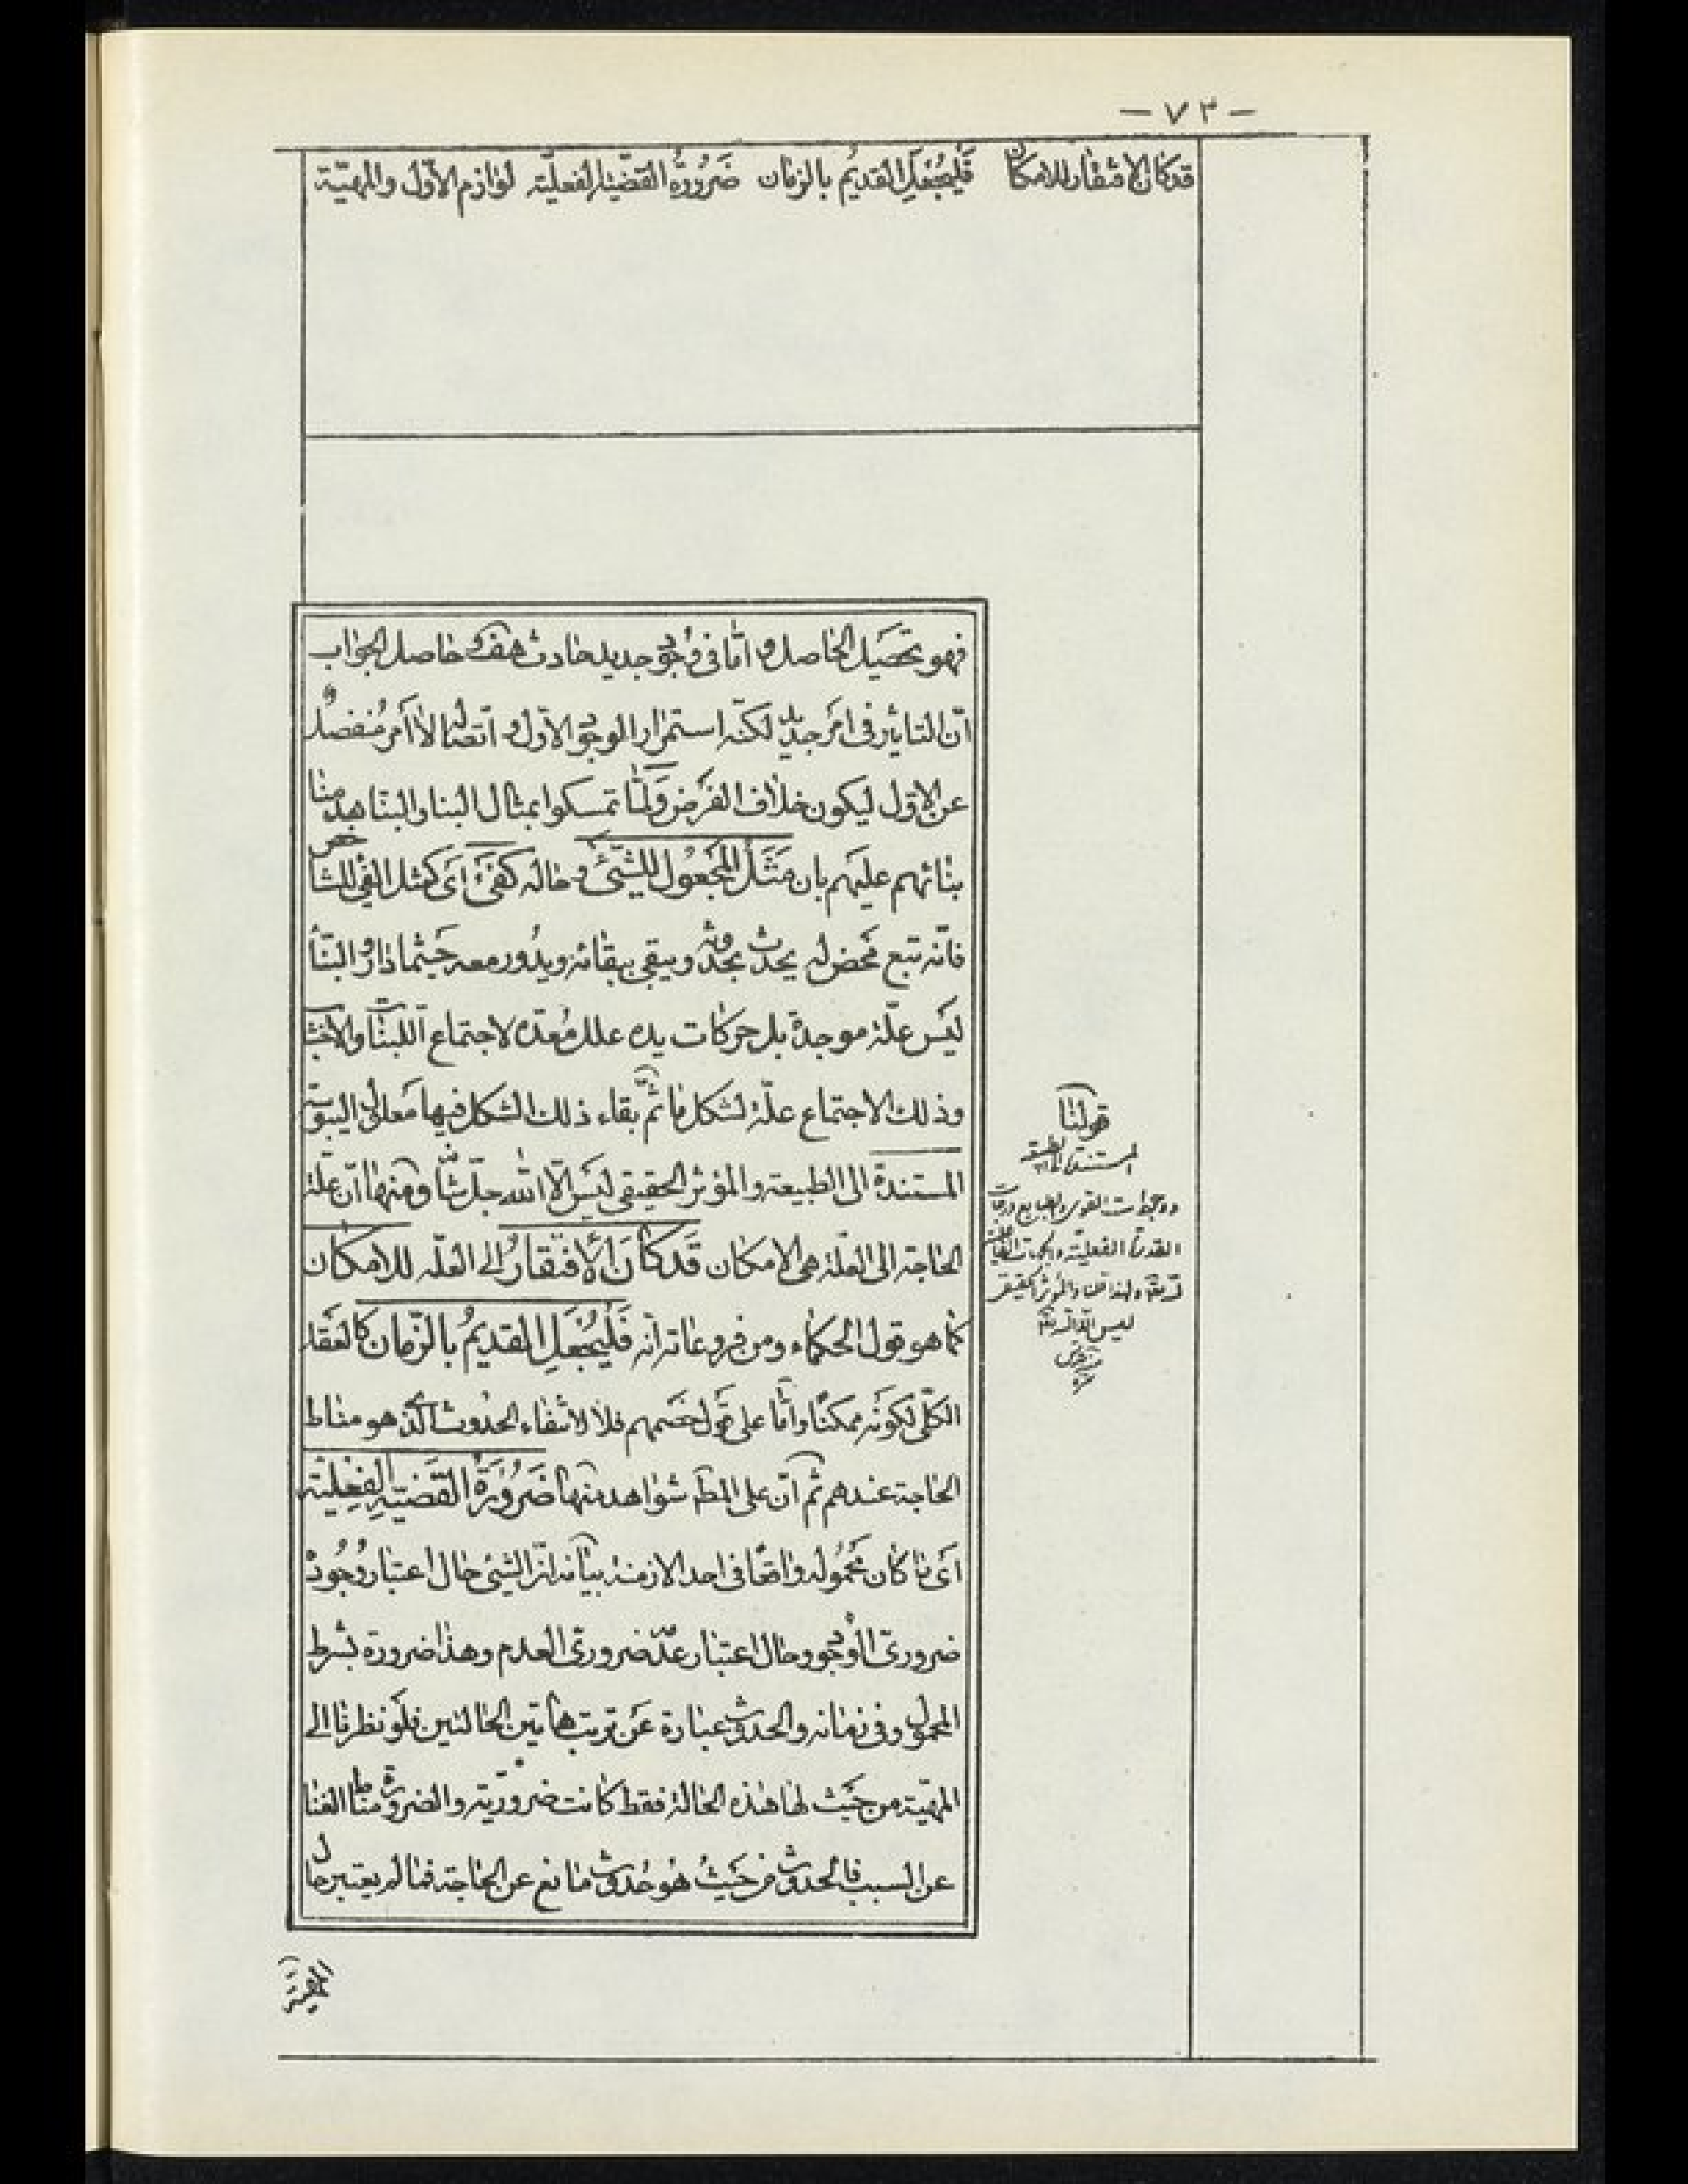 — ٧٣ —
قد كان الافتقار للامكان فليجعل القديم بالزمان ضَرُورَةُ القضيّة الفعليّة لوازم الاوّل والمهيّة
فهو تحصيل الحاصل و امّا فى وجود جديد حادث هف و حاصل الجواب
انّ التاثير فى امر جديد لكنّه استمرار الوجود الاوّل و اتصاله لا امر مُنفصلٌ
عن الاوّل ليكون خلاف الفرض وَلَمّا تمسكوا بمثال البنا والبنّا هدمنا
بنائهم عليهم بان مَثَلُ المَجعُول للشّيئ و حاله كَفَيْئٍ اَى كمثل الفئ للشاخص
فانّه تبع مَحض له يحدث بحدوثه ويبقى ببقائه ويدُور معه حيثما دار و البنّاُ
ليَس علّة موجدة بل حركات يده علل مُعدّه لاجتماع اللبنات والاخشاب
وذلك الاجتماع علّة لشكل ما ثمّ بقاء ذلك الشكل فيها مَعلول اليبوسة
المستندة الى الطبيعة والمؤثر الحقيقى ليَس الّا الله جلّ شأنه ومنها انّ علّة
الحاجة الى العلّة هى الامكان قَد كانَ الاِفتقارُ الى العلّه للامكان
كما هو قول الحكماء ومن فروعاته انّه فَليُجعَلِ القديمُ بالزّمان كالعقد
الكلّى لكونه ممكنًا وامّا على قول خصمهم فلا لانتفاء الحدُوث الّذى هو مناط
الحاجة عندهم ثم انّ على المط شواهد منها ضَرُورَةُ القَضيّةِ الفِعليّة
اَى ما كان مَحمُوله واقعًا فى احد الازمنة بيانه انّ الشيئ حال اعتبار وُجُوده
ضرورىّ الوُجود وحال اعتبار عدمه ضرورى العدم وهذا ضرورة بشرط
المحمول وفى زمانه والحدوث عبارة عَن ترتب هاتين الحالتين فلَو نظرنا الى
المهيّة من حَيث لها هذه الحالة فقط كانت ضروريّة والضرورة مناط الغنا
عن السبب فالحدوث من حَيثُ هُو حُدوث مانع عن الحاجة فما لم يعتبر حال
قولنا
المستندة الى الطبيعة
القدرة الفعليّة
والمؤثر الحقيقى
ليس الّا الله
المهيّة